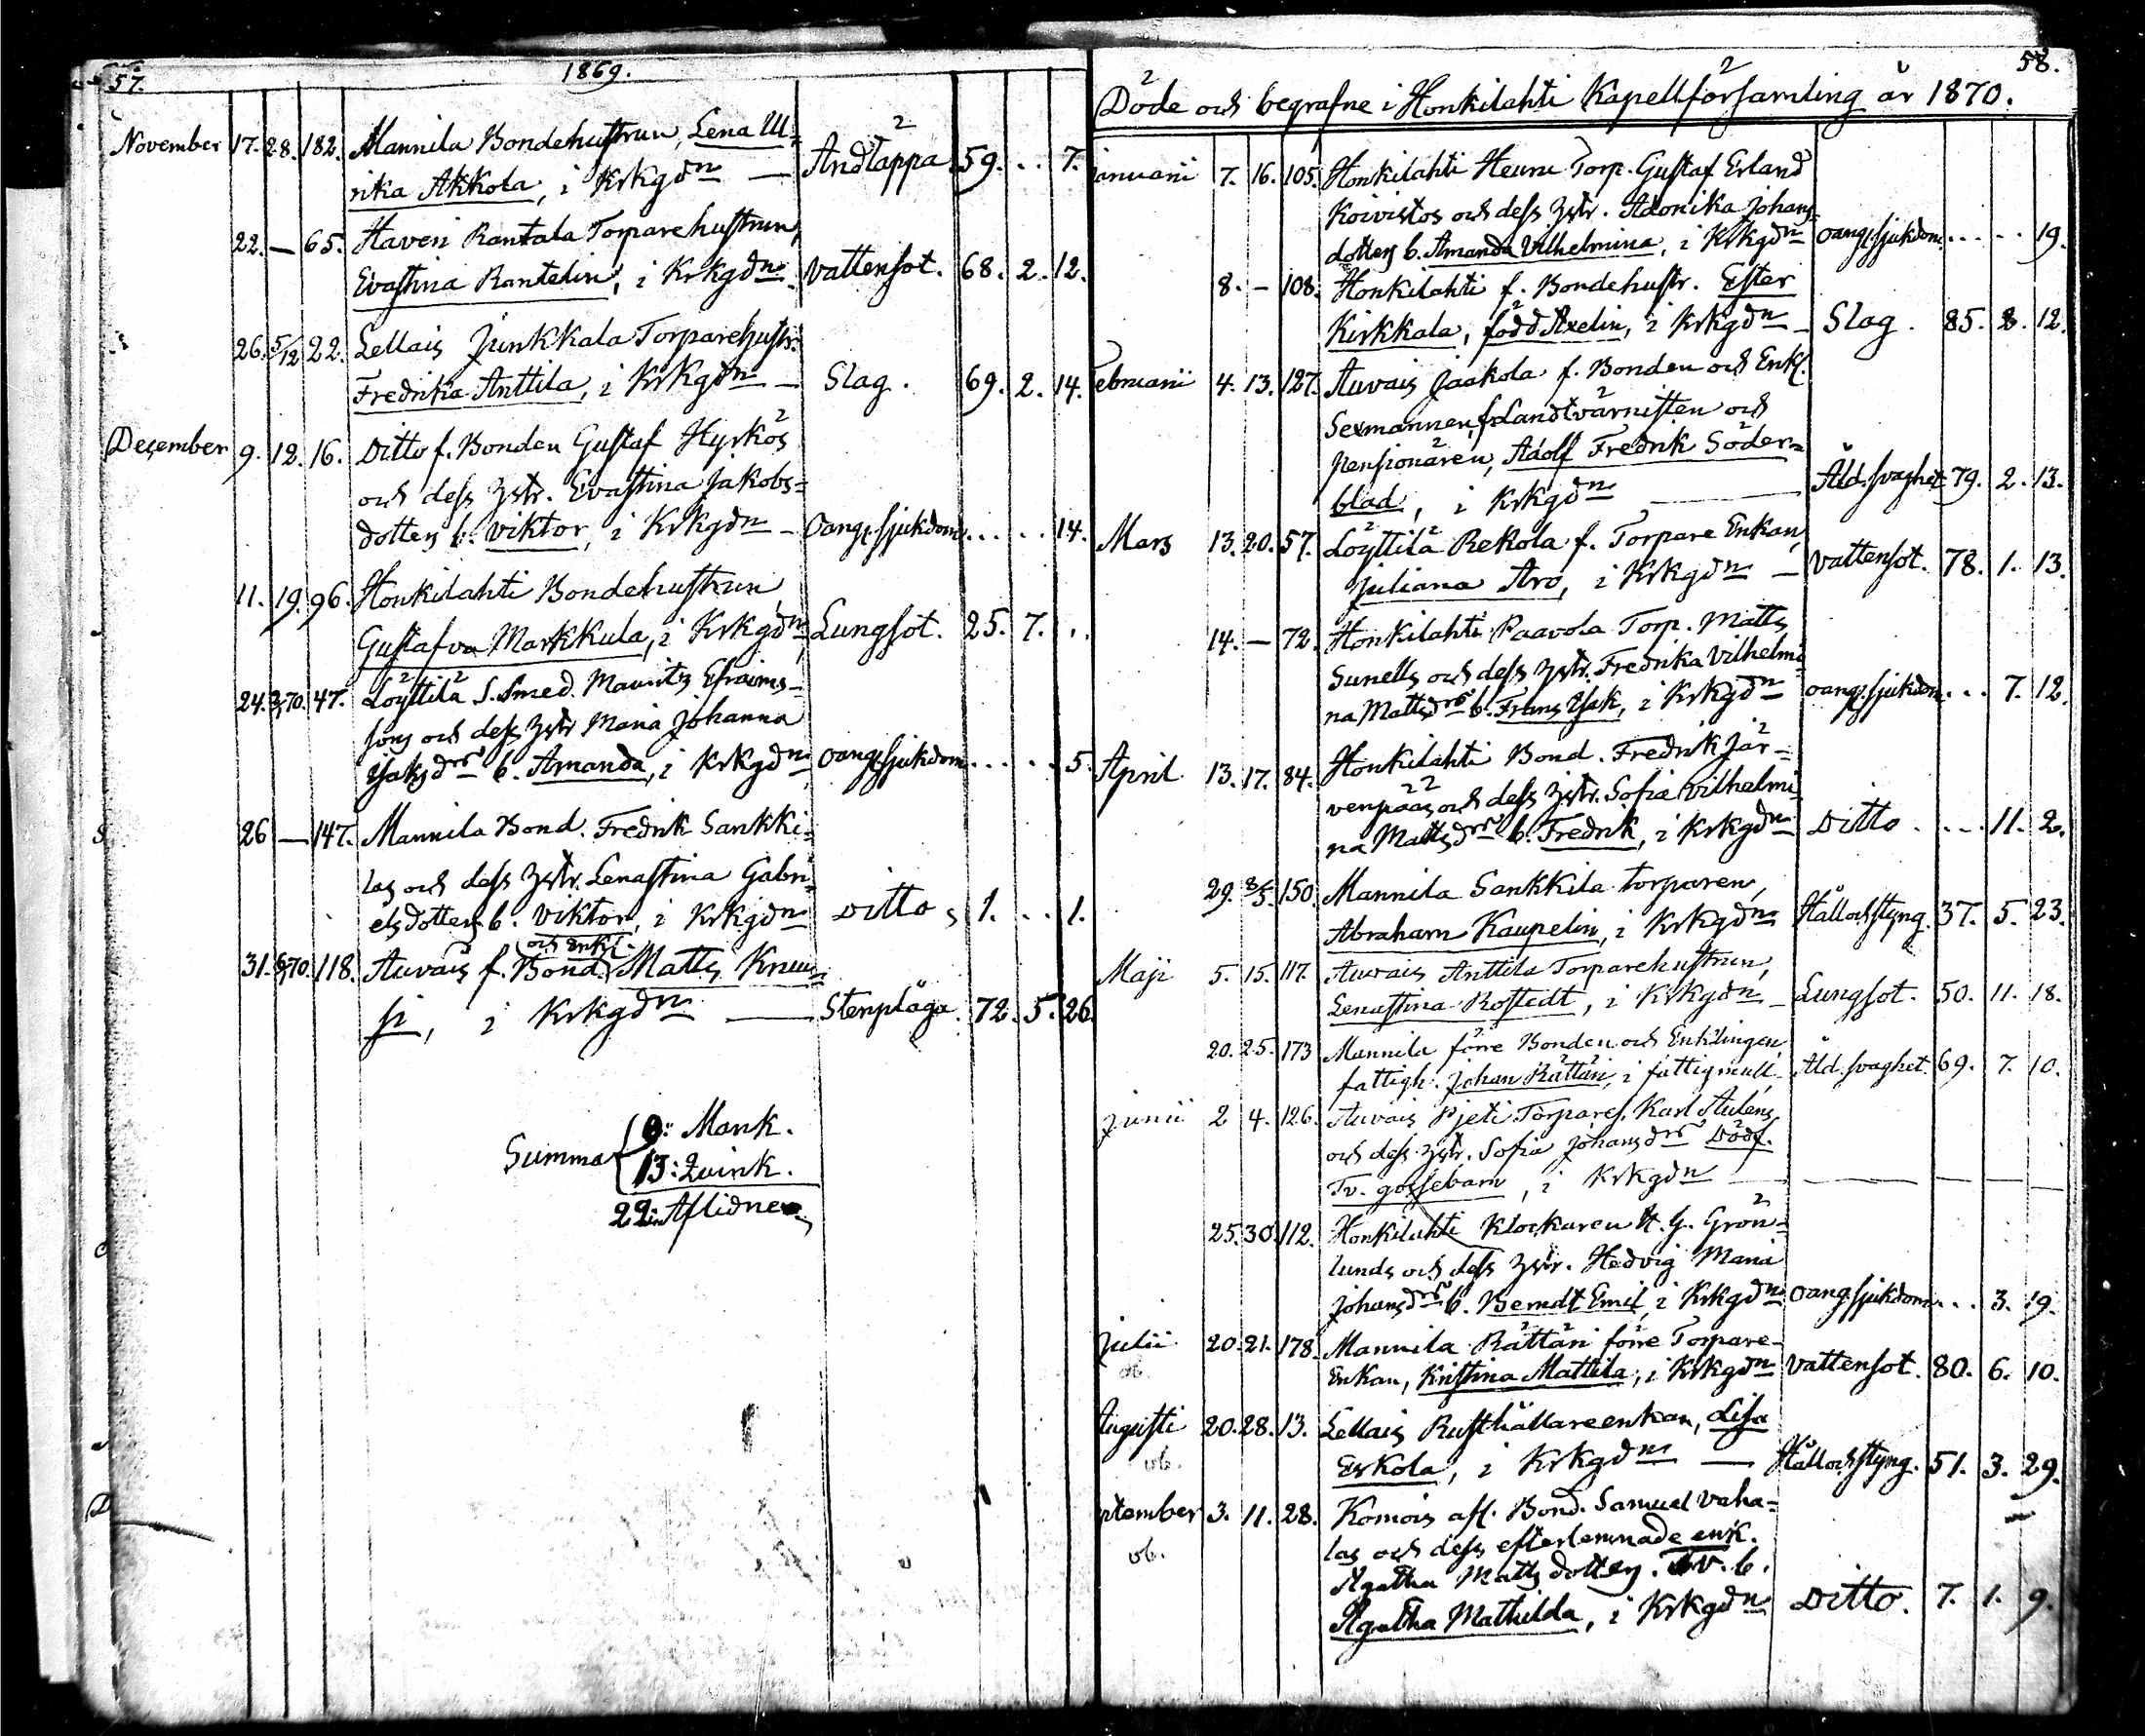 57.
1869.
November 17. 28. 182. Mannila Bondehustrun, Lena Ul=
rika Akkola, i Krkgdn — Andtäppa 59. .. 7.
22. — 65. Haveri Rantala Torparehustrun,
Evastina Rantelin, i Krkgdn. Vattensot. 68. 2. 12.
26. 5/12 22. Lellais Junkkala Torparehustr.
Fredrika Anttila, i Krkgdn — Slag. 69. 2. 14.
December 9. 12. 16. Ditto f. Bonden Gustaf Hyrkös
och dess hstr. Evastina Jakobs=
dotters b. Viktor, i Krkgdn — Oang. sjukdom. .. .. 14.
11. 19. 96. Honkilahti Bondehustrun
Gustafva Markkula, i Krkgdn, Lungsot. 25. 7. ..
24. 70. 47. Löyttilä S. Smed. Mauritz Efraims-
sons och dess hstr Maria Johanna
Isaksdrs b. Amanda, i Krkgdn, oang. sjukdom. .. .. 5.
26 — 147. Mannila Bond. Fredrik Sankki=
las och dess hstr. Lenastina Gabri=
elsdotters b. Viktor, i Krkgdn Ditto 1. .. 1.
och Enkl.
31. 70. 118. Auvais f. Bond. Matts Knuu=
si, i Krkgdn — Stenplåga. 72. 5. 26.
Summa 9: Mank.
13: Quink.
22: Aflidne
58.
Döde och begrafne i Honkilahti Kapellförsamling år 1870.
Januarii 7. 16. 105. Honkilahti Heuru Torp. Gustaf Erland
Koivistos och dess hstr. Adonika Johans=
dotters b. Amanda Vilhelmina, i Krkgdn oang. sjukdom. .. .. 19.
8. — 108. Honkilahti f. Bondehustr. Ester
Kirkkala, född Axelin, i Krkgdn — Slag. 85. 8. 12.
Februarii 4. 13. 127. Auvais Jaakola f. Bonden och Enkl.
Sexmannen, f. Landtvärnisten och
Pensionären, Adolf Fredrik Söder=
blad, i Krkgdn — Åld. svaghet 79. 2. 13.
Mars 13. 20. 57. Löyttilä Rekola f. Torpare Enkan,
Juliana Aro, i Krkgdn — Vattensot. 78. 1. 13.
14. — 72. Honkilahti Paavola Torp. Matts
Sunells och dess hstr. Fredrika Vilhelmi=
na Mattsdrs b. Frans Isak, i Krkgdn oang. sjukdom. .. 7. 12.
April 13. 17. 84. Honkilahti Bond. Fredrik Jär=
venpääs och dess hstr. Sofia Vilhelmi=
na Mattsdrs b. Fredrik, i Krkgdn Ditto. .. 11. 2.
29. 8/5 150. Mannila Sankkila torparen,
Abraham Kaupelin, i Krkgdn Håll och styng. 37. 5. 23.
Maji 5. 15. 117. Auvais Anttila Torparehustrun,
Lenastina Rostedt, i Krkgdn — Lungsot. 50. 11. 18.
20. 25. 173 Mannila förre Bonden och Enklingen,
fattigh. Johan Rättäri, i fattigmull — Åld. svaghet. 69. 7. 10.
Junii 2 4. 126. Auvais Pjeti Torpares. Karl Auléns
och dess hstr. Sofia Johansdrs Dödf.
Tv. gossebarn, i Krkgdn —
25. 30. 112. Honkilahti Klockaren K. G. Grön=
lunds och dess hstr. Hedvig Maria
Johansdrs b. Berndt Emil, i Krkgdn oang. sjukdom. .. 3. 19.
Julii 20. 21. 178. Mannila Rättäri förre Torpare-
Enkan, Kristina Mattila, i Krkgdn Vattensot. 80. 6. 10.
Augusti 20. 28. 13. Lellais Rusthållareenkan, Lisa
Eskola, i Krkgdn — Håll och styng. 51. 3. 29.
ptember 3. 11. 28. Komois afl. Bond. Samuel Vaha=
las och dess efterlemnade enk.
Agatha Mattsdotters. Tv. b.
Agatha Mathilda, i Krkgdn Ditto. 7. 1. 9.